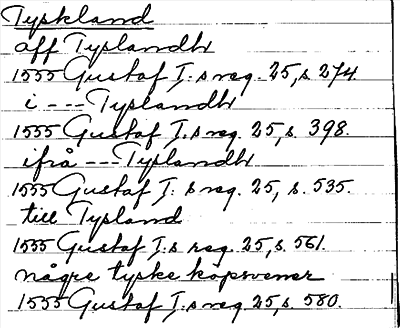 Tyskland
aff Tyslandh
1555 Gustaf I:s reg. 25, s 274.
i --- Tyslandh
1555 Gustaf I:s reg. 25, s. 398.
ifrå --- Tyslandh
1555 Gustaf I: s reg. 25, s. 535.
till Tysland
1555 Gustaf I:s reg. 25, s. 561.
några tyske köpsvener
1555 Gustaf I:s reg. 25, s. 580.